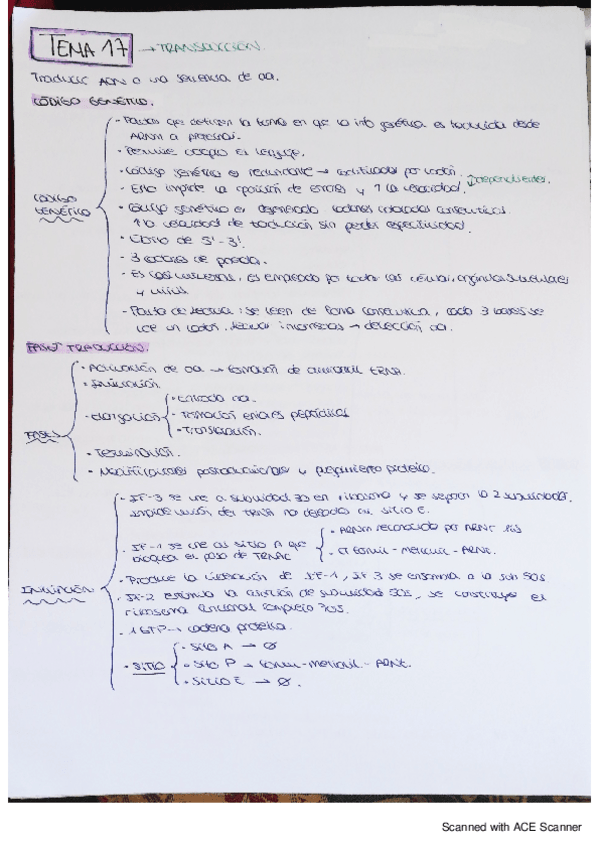 TEMA 17 → TRANSDUCCIÓN.
Traducir ARN a una secuencia de aa.
CÓDIGO GENÉTICO.
CÓDIGO GENÉTICO
- Pautas que definen la forma en que la info genética es traducida desde
ARNm a proteínas.
- Permite el lenguaje.
- Código genético es redundante → codificados por codón.
- Esto impide la aparición de errores y ↑ la velocidad. Dependientes.
- Código genético es degenerado codones colocados consecutivos
↑ la velocidad de traducción sin perder especificidad.
- de 5'-3'.
- 3 codones de parada.
- Es casi universal, es empleado por todas las células, orgánulos subcelulares
y virus
- Pauta de lectura: se leen de forma consecutiva, cada 3 bases se
lee un codón. lectura → aa.
FASES TRADUCCIÓN.
FASES
- Activación de aa → formación de aminoacil tRNA.
- Iniciación
- elongación
- Entrada aa.
- Formación enlaces peptídicos
- Translocación.
- Terminación.
- Modificaciones postraduccionales y plegamiento proteico.
INICIACIÓN
- IF-3 se une a subunidad 30 en ribosoma y se separan las 2 subunidades.
impide unión del tRNA no deseado en sitio E.
- IF-1 se une al sitio A que
bloquea el paso de tRNAC
- ARNm reconocido por ARNr 16S
- Formil-Metionil-ARNt.
- Produce la liberación de IF-1, IF 3 se ensambla a la sub 50S
- IF-2 estimula la de subunidad 50S, se construye el
ribosoma funcional Complejo 70S.
- 1 GTP → cadena proteica.
- SITIO
- Sitio A → Ø
- Sitio P → formil-metionil-ARNt.
- Sitio E → Ø.
Scanned with ACE Scanner